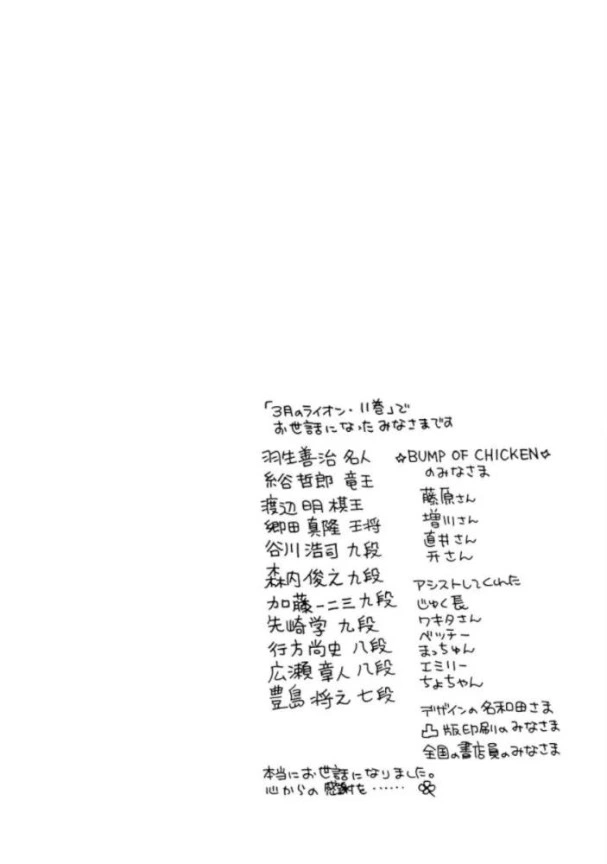 「3月のライオン・11巻」で
お世話になったみなさまです
羽生善治 名人
糸谷哲郎 竜王
渡辺明 棋王
郷田真隆 王将
谷川浩司 九段
森内俊之 九段
加藤一二三 九段
先崎学 九段
行方尚史 八段
広瀬章人 八段
豊島将之 七段
☆BUMP OF CHICKEN☆
のみなさま
藤原さん
増川さん
直井さん
升さん
アシストしてくれた
じゅく長
ワキタさん
ベッチー
まっちゅん
エミリー
ちょちゃん
デザインの名和田さま
凸版印刷のみなさま
全国の書店員のみなさま
本当にお世話になりました。
心からの感謝を……